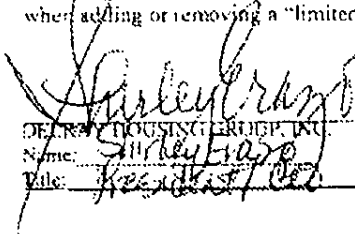 when adding or removing a "limited
Shirley Erazo
DELRAY HOUSING GROUP, INC.
Name: Shirley Erazo
Title: President / CEO